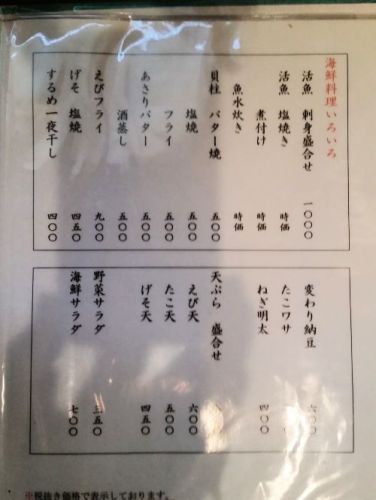 海鮮料理いろいろ
活魚 刺身盛合せ 一〇〇〇
活魚 塩焼き 時価
煮付け 時価
魚水炊き 時価
貝柱 バター焼 五〇〇
塩焼 五〇〇
フライ 五〇〇
あさりバター 五〇〇
酒蒸し 五〇〇
えびフライ 九〇〇
げそ 塩焼 四五〇
するめ一夜干し 四〇〇
変わり納豆 六〇〇
たこワサ
ねぎ明太 四〇〇
天ぷら 盛合せ
えび天 六〇〇
たこ天 五〇〇
げそ天 四五〇
野菜サラダ 三五〇
海鮮サラダ 七〇〇
※税抜き価格で表示しております。